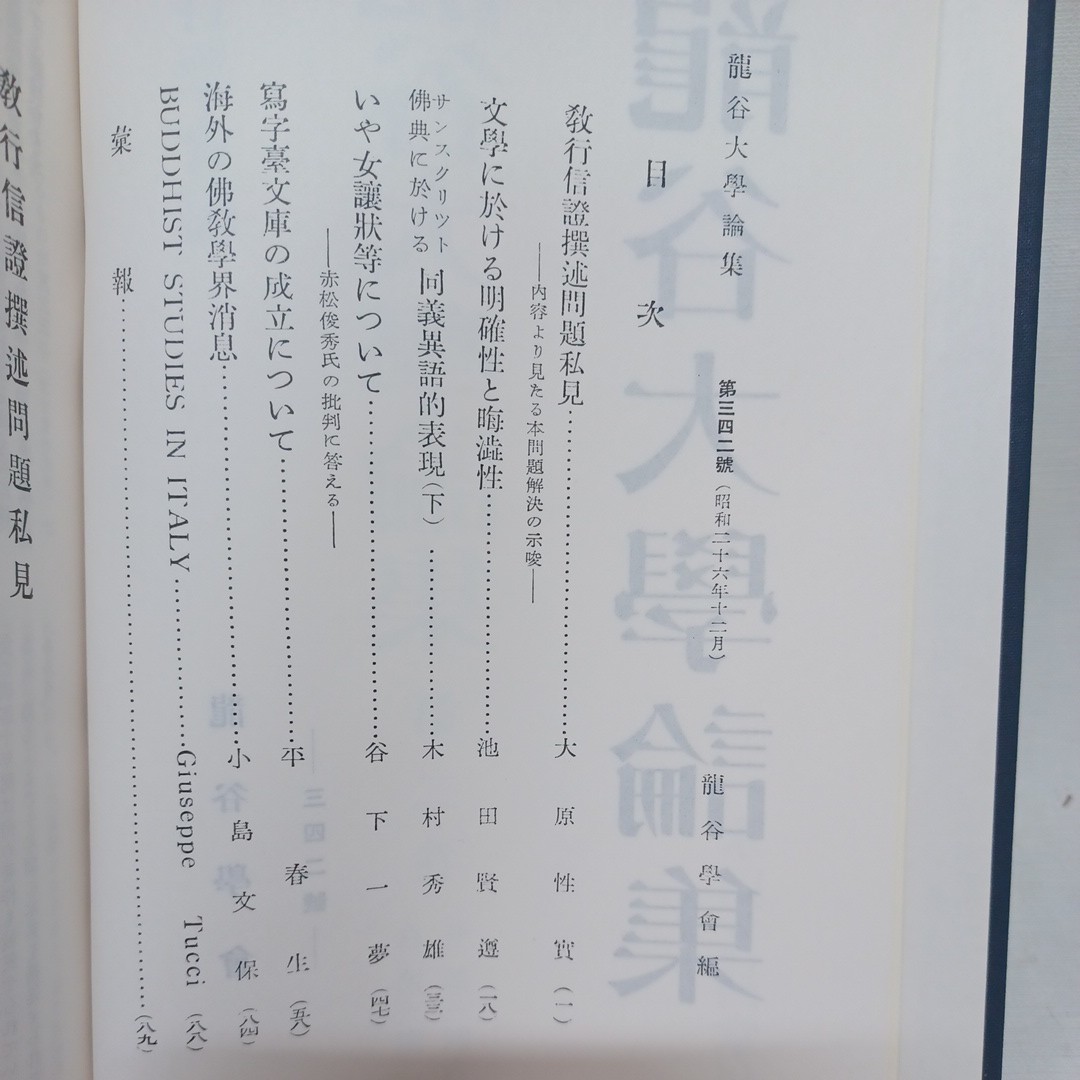 龍谷大學論集 第三四二號(昭和二十六年十二月) 龍谷學會編
目次
教行信證撰述問題私見……大原性實(一)
――内容より見たる本問題解決の示唆――
文學に於ける明確性と晦澁性……池田賢遵(一八)
サンスクリツト佛典に於ける同義異語的表現(下)……木村秀雄(三三)
いや女讓狀等について……谷下一夢(四七)
――赤松俊秀氏の批判に答える――
寫字臺文庫の成立について……平春生(五八)
海外の佛教學界消息……小島文保(八四)
BUDDHIST STUDIES IN ITALY……Giuseppe Tucci(八八)
彙報……(八九)
教行信證撰述問題私見
龍谷大學論集
―三四二號―
龍谷學會